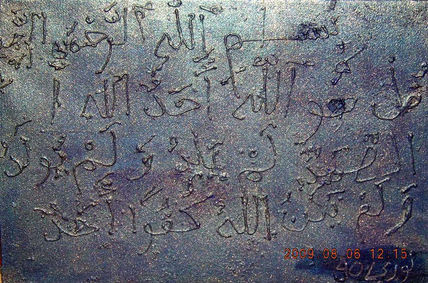 بسم الله الرحمن الرحيم
قل هو الله أحد الله ا
لصمد لم يلد و لم يولد
و لم يكن له كفوا أحد
2009.08.06 12:15